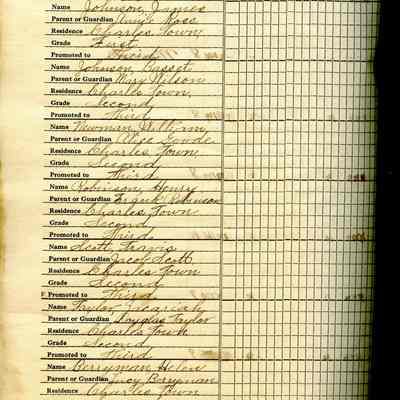 Name Johnson, James
Parent or Guardian Ross
Residence Charles Town,
Grade First
Promoted to Third
Name Johnson, Basset
Parent or Guardian Mary Nelson
Residence Charles Town,
Grade Second
Promoted to Third
Name Newman, William,
Parent or Guardian Alice Goode
Residence Charles Town
Grade Second
Promoted to Third
Name Robinson, Henry
Parent or Guardian Frank Robinson
Residence Charles Town
Grade Second
Promoted to Third
Name Scott, Travis
Parent or Guardian Jacob Scott
Residence Charles Town
Grade Second
Promoted to Third
Name Taylor, Zacariah
Parent or Guardian Douglas Taylor
Residence Charles Town
Grade Second
Promoted to Third
Name Berryman Helen
Parent or Guardian Lucy Berryman
Residence Charles Town